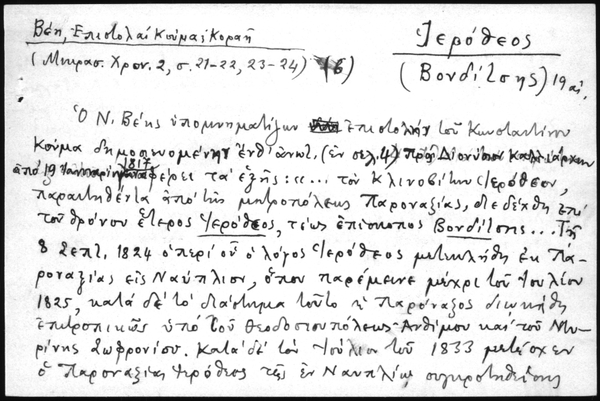 Βέη, Ἐπιστολαί Κούμα, Κοραῆ
Ἱερόθεος
(Μικρασ. Χρον. 2, σ. 21-22, 23-24)
(Βονδίτσης) 19 αἰ.
Ὁ Ν. Βέης ὑπομνηματίζων ἐπιστολήν τοῦ Κωνσταντίνου
Κούμα δημοσιευομένην ἐνθ' ἀνωτ. (ἐν σελ. 4) πρός Διονύσιον Καλλιάρχην
ἀπό 19 Ἰανουαρίου 1817 ἀναφέρει τά ἑξῆς: «... τόν Κλινοβίτην Ἱερόθεον,
παραιτηθέντα ἀπό τῆς μητροπόλεως Παροναξίας, διεδέχθη ἐπί
τοῦ θρόνου ἕτερος Ἱερόθεος, τέως ἐπίσκοπος Βονδίτσης... Τῇ
8 Σεπτ. 1824 ὁ περί οὗ ὁ λόγος Ἱερόθεος μετεκλήθη ἐκ Πα-
ροναξίας εἰς Ναύπλιον, ὅπου παρέμεινε μέχρι τοῦ Ἰουλίου
1825, κατά δέ τό διάστημα τοῦτο ἡ Παρόναξος διῳκήθη
ἐπιτροπικῶς ὑπό τοῦ Θεοδοσιουπόλεως Ἀνθίμου καί τοῦ Μυ-
ρίνης Σωφρονίου. Κατά δέ τόν Ἰούλιον τοῦ 1833 μετέσχεν
ὁ Παροναξίας Ἱερόθεος τῆς ἐν Ναυπλίῳ συγκροτηθείσης